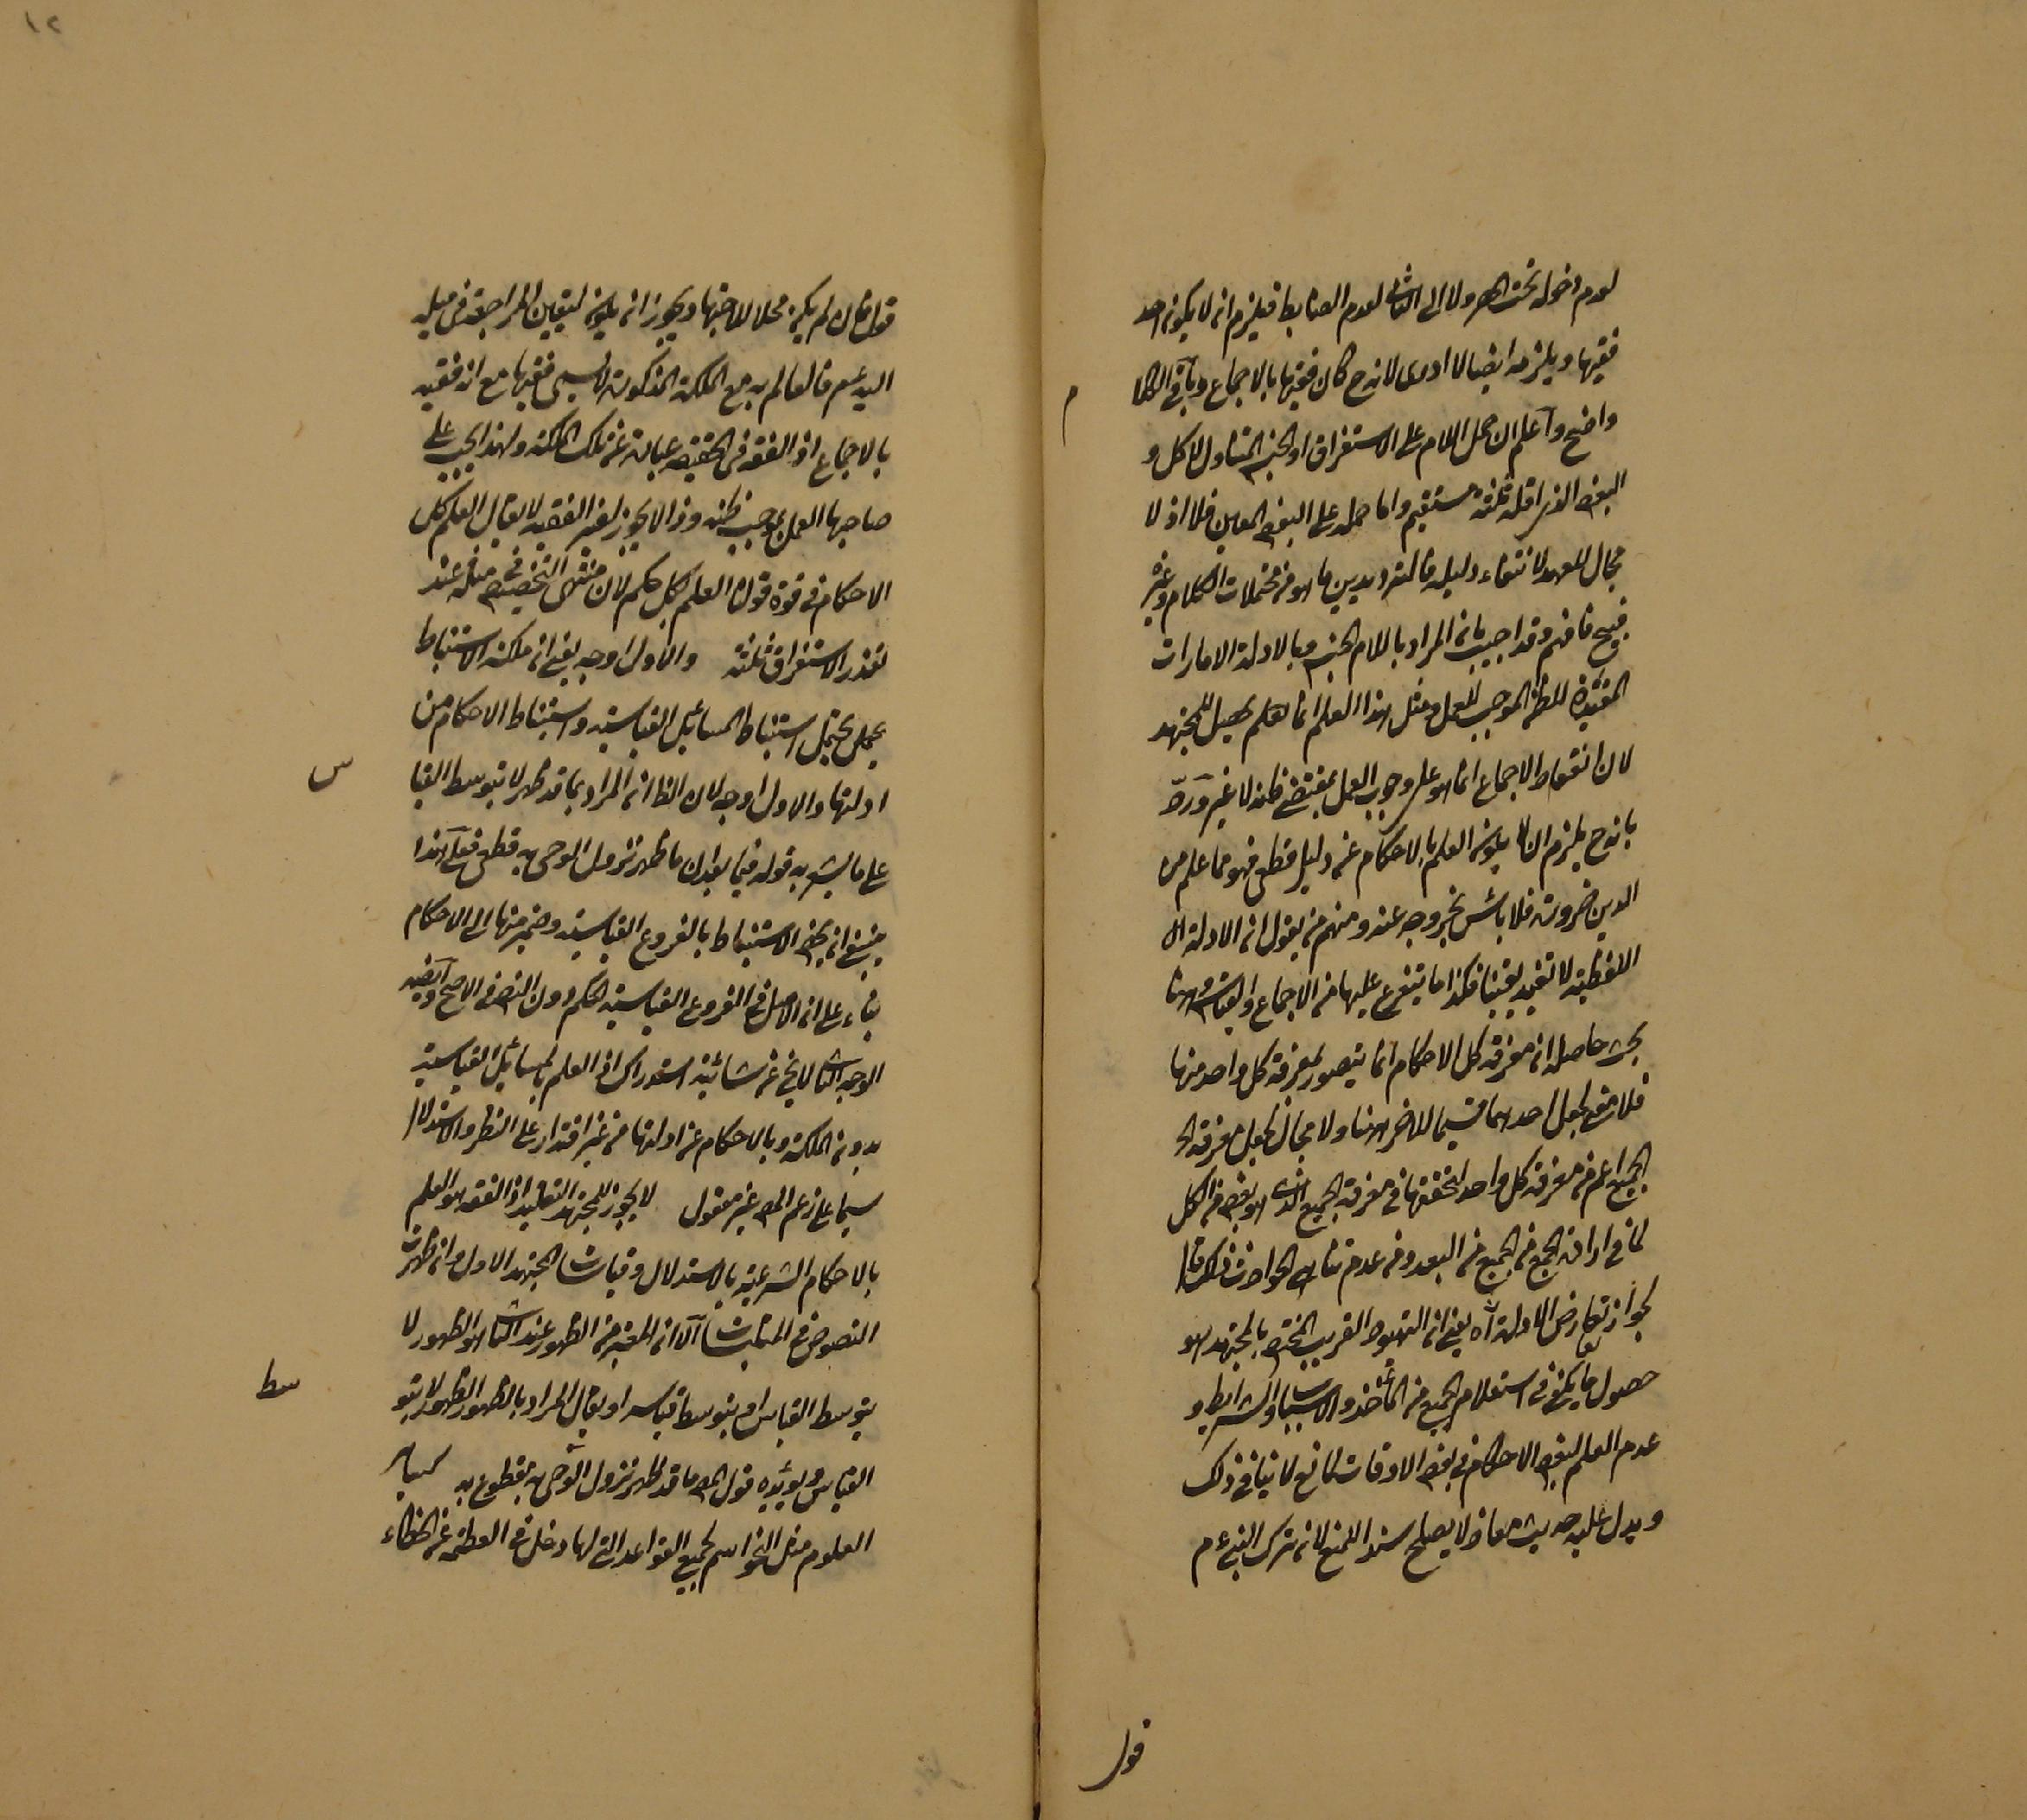 لعدم دخوله تحت الحصر ولا الى الثانى لعدم الضابط فيلزم ان لا يكون احد
فقيها ويلزمه ايضا لا ادرى لانه ح كان فقيها بالاجماع وباقى الكلا
م
واضح واعلم ان حمل اللام على الاستغراق او الجنس المتناول للكل و
البعض الذى اقله ثلثة مستقيم واما حمله على البعض المعين فلا اذ لا
مجال للعهد لانتفاء دليله فالترديد بين ما هو من محتملات الكلام وغيره
قبيح فافهم وقد اجيب بان المراد باللام الجنس وبالادلة الامارات
المفيدة للظن الموجب للعمل ومثل هذا العلم انما يحصل للمجتهد
لان انعقاد الاجماع انما هو على وجوب العمل بمقتضى ظنه لا غير ورد
بانه ح يلزم ان لا يكون العلم بالاحكام عن دليل قطعى فهو مما علم من
الدين ضرورة فلا بأس بخروجه عنه ومنهم من يقول ان الادلة
اللفظية لا تفيد يقينا فكذا ما يتفرع عليها من الاجماع والقياس وههنا
بحث حاصله ان معرفة كل الاحكام انما يتصور بمعرفة كل واحد منها
فلا معنى لجعل احدهما قسيما للاخر ههنا ولا مجال لجعل معرفة
الجميع اعم من معرفة كل واحد لتحققها فى معرفة الجميع الذى هو بعض من الكل
لما فى ارادة الجميع من الجميع من البعد ومن عدم تناهى الحوادث
لجواز تعارض الادلة آه يعنى ان التهيؤ القريب المختص بالمجتهد هو
حصول ما يكفى فى استعلام الجميع من المأخذ والاسباب والشرايط و
عدم العلم ببعض الاحكام فى بعض الاوقات لمانع لا ينافى ذلك
ويدل عليه حديث معاذ لا يصلح سندا للمنع لانه ترك النبى عم
قول
١٢
قوله فان لم يكن محلا للاجتهاد ويجوز ان يكون لتعيين المراجعة فى مثله
اليه عم فالعالم به مع الملكة المذكورة لا يسمى فقيها مع انه فقيه
بالاجماع اذ الفقه فى الحقيقة عبارة عن تلك الملكة ولهذا يجب على
صاحبها العمل بموجب ظنه وذا لا يجوز لغير الفقيه لا يقال العلم بكل
الاحكام فى قوة قولنا العلم بكل حكم لان منتهى التخصيص فى مثله عند
تعذر الاستغراق ثلثة والاول اوجه يعنى ان ملكة الاستنباط
مجملا يحتمل استنباط المسائل القياسية واستنباط الاحكام من
ادلتها والاول اوجه لان الظ ان المراد بما قد ظهر لا بتوسط القيا
س
على ما يشعر به قوله فيما بعد ان ما ظهر نزول الوحى به قطعى فعلى هذا
ينبغى ان يخص الاستنباط بالفروع القياسية وضمير منها الى الاحكام
بناء على ان الاصل فى الفروع القياسية الحكم دون النص فى الاصح وايضا
الوجه الثانى لا يخ عن شائبة استدراك اذ العلم بالمسائل القياسية
بدون الملكة وبالاحكام عن ادلتها من غير اقتدار على النظر والاستدلال
سيما على زعم المص غير معقول لا يجوز للمجتهد التقليد اذ الفقه هو العلم
بالاحكام الشرعية بالاستدلال وقياسات المجتهد الاول وان ظهرت
النصوص فى الا ان المعتبر من الظهور عند الثانى هو الظهور لا
بتوسط القياس او بتوسط قياسه او يقال المراد بالظهور الظهور لا بتو
سط
القياس ويؤيده قول المص ما قد ظهر نزول الوحى به مقطوع به
العلوم مثل النحو اسم لجميع القواعد التى لها دخل فى العصمة عن الخطاء